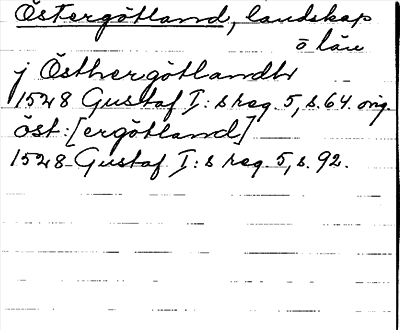 Östergötland, landskap
o län
j Östhergötlandh
1528 Gustaf I:s reg. 5, s. 64. orig.
öst:[ergötland]
1528 Gustaf I:s reg. 5, s. 92.